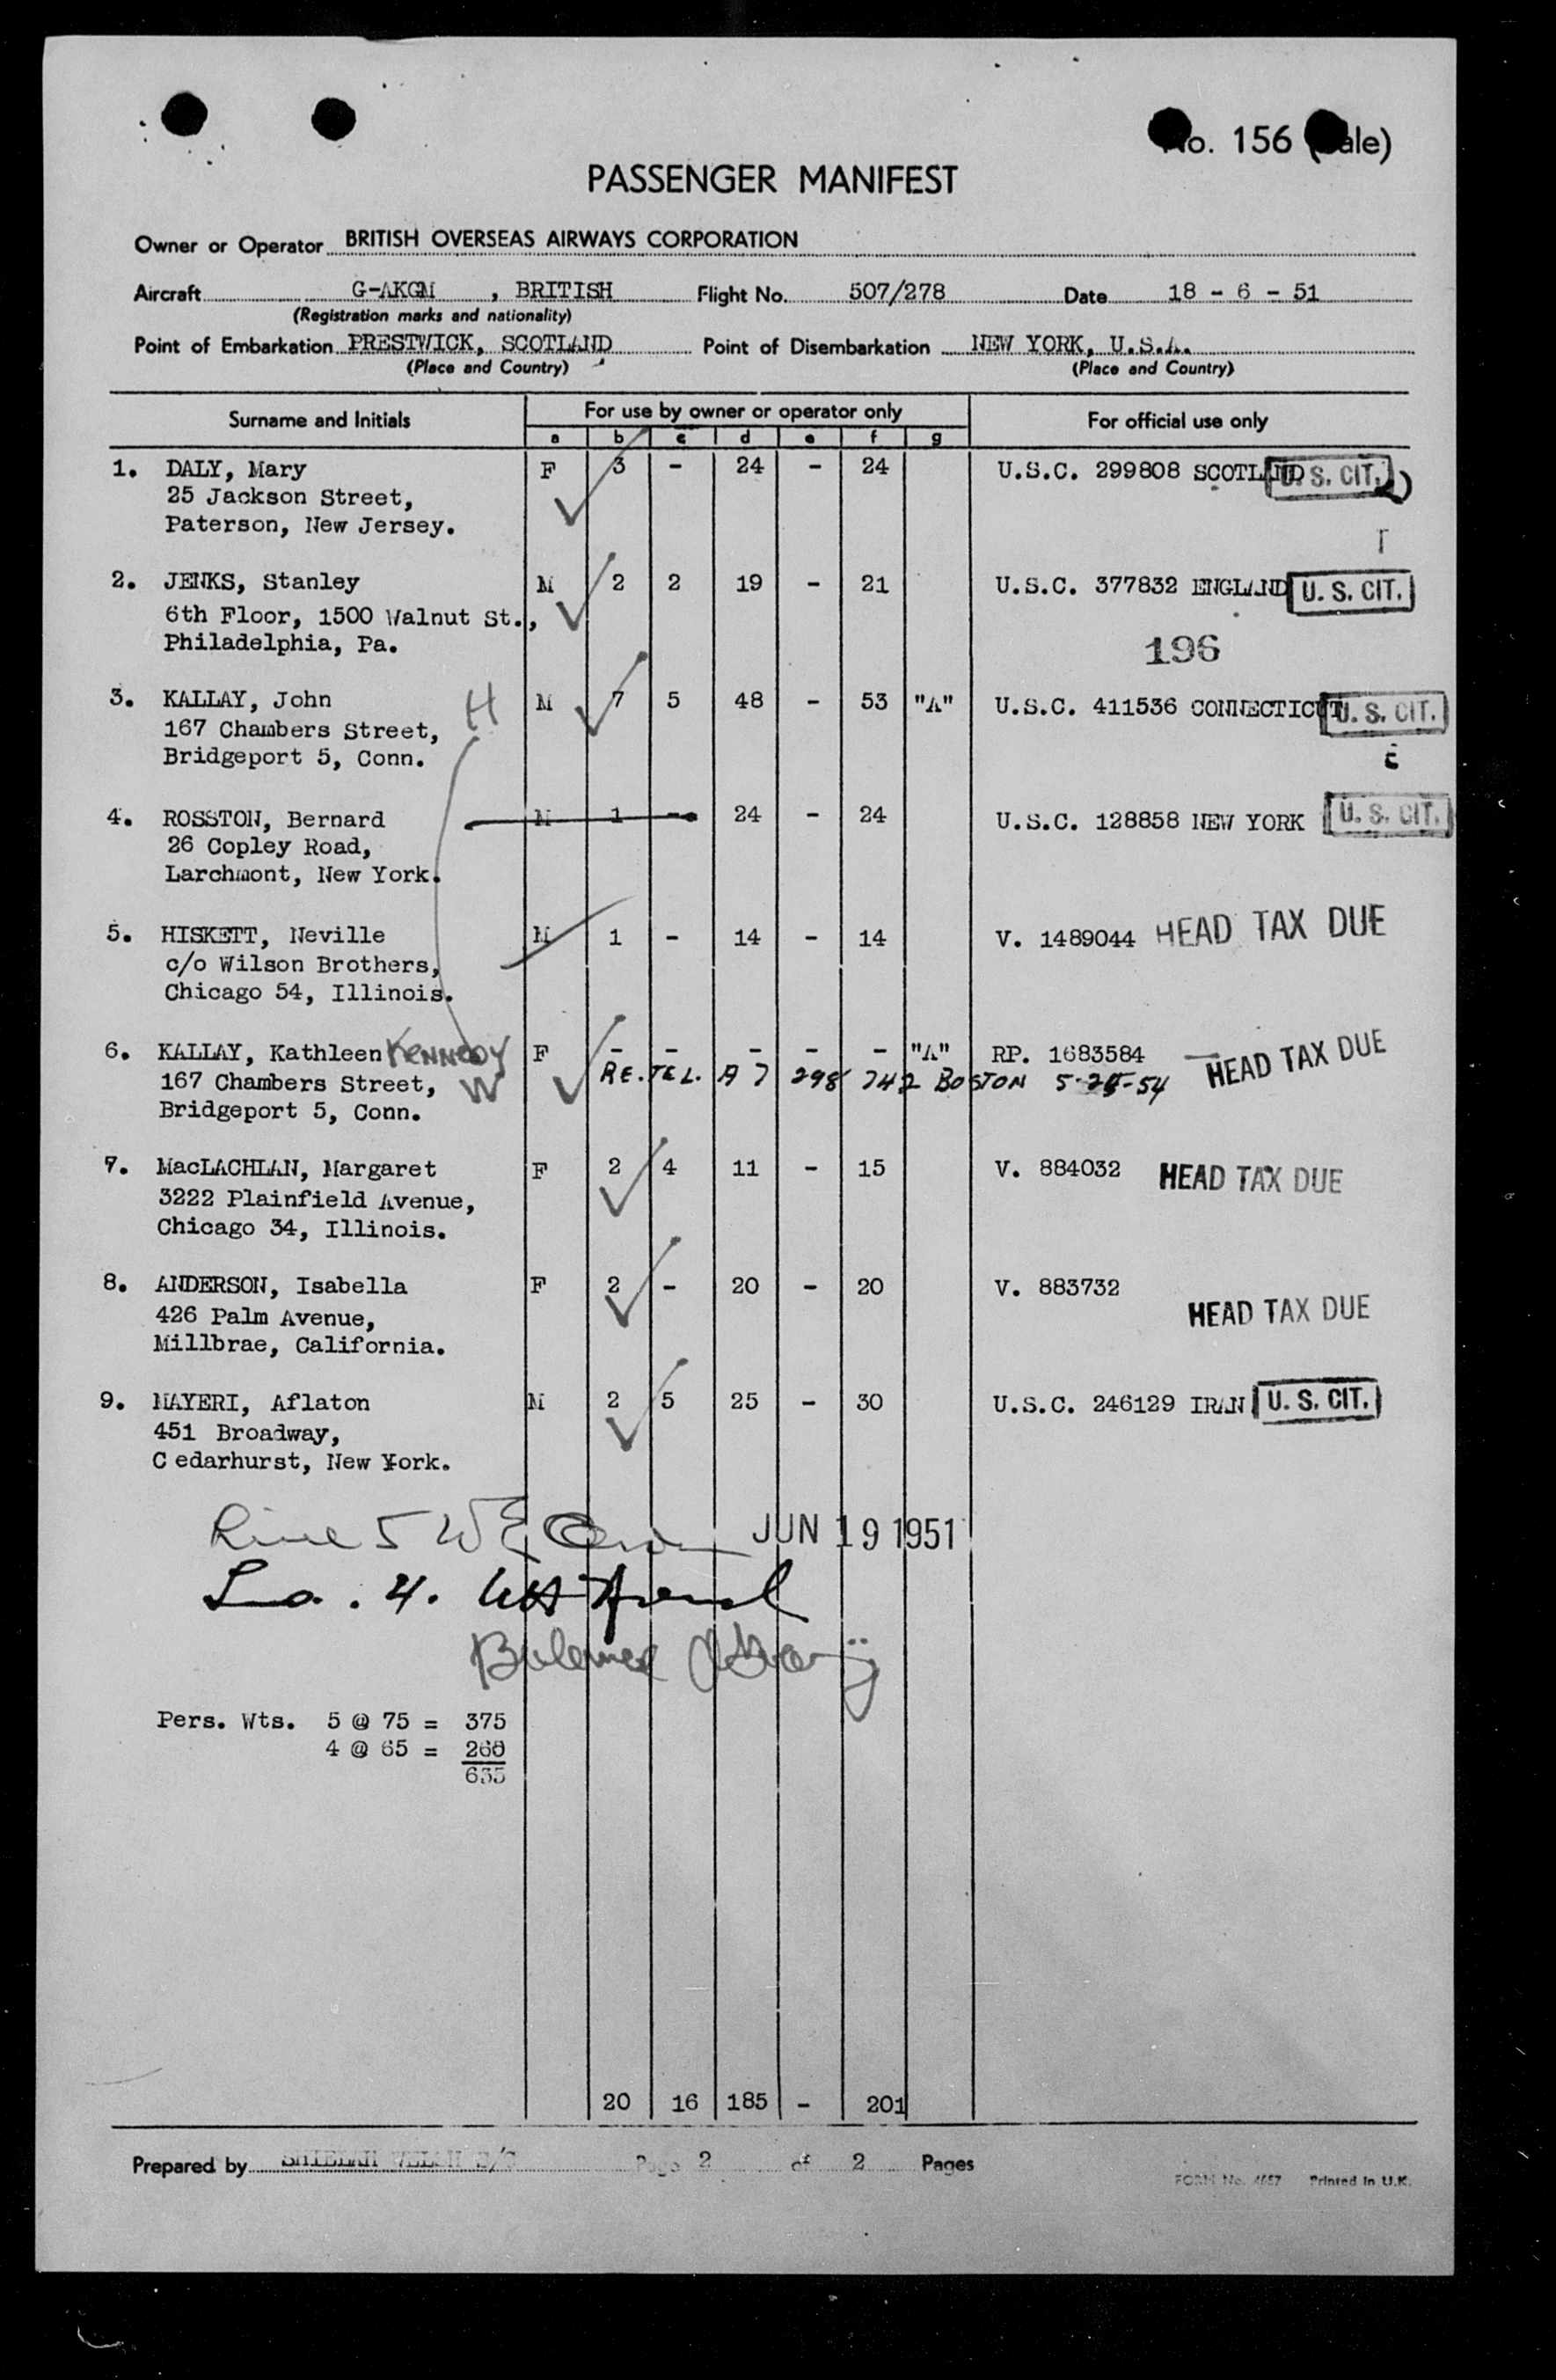 No. 156 (ale)
PASSENGER MANIFEST
Owner or Operator BRITISH OVERSEAS AIRWAYS CORPORATION
Aircraft G-AKGM , BRITISH Flight No. 507/278 Date 18 - 6 - 51
(Registration marks and nationality)
Point of Embarkation PRESTWICK, SCOTLAND Point of Disembarkation NEW YORK, U.S.A.
(Place and Country) (Place and Country)
Surname and Initials For use by owner or operator only For official use only
a b c d e f g
1. DALY, Mary F 3 - 24 - 24 U.S.C. 299808 SCOTLAND U. S. CIT.
25 Jackson Street,
Paterson, New Jersey.
2. JENKS, Stanley M 2 2 19 - 21 U.S.C. 377832 ENGLAND U. S. CIT.
6th Floor, 1500 Walnut St.,
Philadelphia, Pa.
196
3. KALLAY, John H M 7 5 48 - 53 "A" U.S.C. 411536 CONNECTICUT U. S. CIT.
167 Chambers Street,
Bridgeport 5, Conn.
4. ROSSTON, Bernard M 1 - 24 - 24 U.S.C. 128858 NEW YORK U. S. CIT.
26 Copley Road,
Larchmont, New York.
5. HISKETT, Neville M 1 - 14 - 14 V. 1489044 HEAD TAX DUE
c/o Wilson Brothers,
Chicago 54, Illinois.
6. KALLAY, Kathleen KENNEDY F - - - - - "A" RP. 1683584 HEAD TAX DUE
RE. TEL. A 7 298 742 BOSTON 5-25-54
167 Chambers Street, W
Bridgeport 5, Conn.
7. MacLACHLAN, Margaret F 2 4 11 - 15 V. 884032 HEAD TAX DUE
3222 Plainfield Avenue,
Chicago 34, Illinois.
8. ANDERSON, Isabella F 2 - 20 - 20 V. 883732
HEAD TAX DUE
426 Palm Avenue,
Millbrae, California.
9. MAYERI, Aflaton M 2 5 25 - 30 U.S.C. 246129 IRAN U. S. CIT.
451 Broadway,
C edarhurst, New York.
JUN 19 1951
Pers. Wts. 5 @ 75 = 375
4 @ 65 = 260
635
20 16 185 - 201
Prepared by Page 2 of 2 Pages
FORM No. 4657 Printed in U.K.